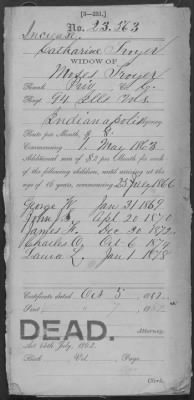 [3—281.]
Increase
No. 23.263
Catharine Troyer
WIDOW OF
Moses Troyer
Rank Priv Co. G
Regt. 94 Ills Vols.
Indianapolis Agency
Rate per Month, $ 8
Commencing 1 May 1863
Additional sum of $2 per Month for each
of the following children, until arriving at the
age of 16 years, commencing 25 July 1866
George W. Jan 31 1869
John Apl 20 1870
James Dec 20 1872
Charles O. Oct 6 1874
Laura Jan 1 1878
Certificate dated Oct 5 186
Sent 7
Attorney.
DEAD.
Act 14th July, 1862.
Book Vol. Page
Clerk.